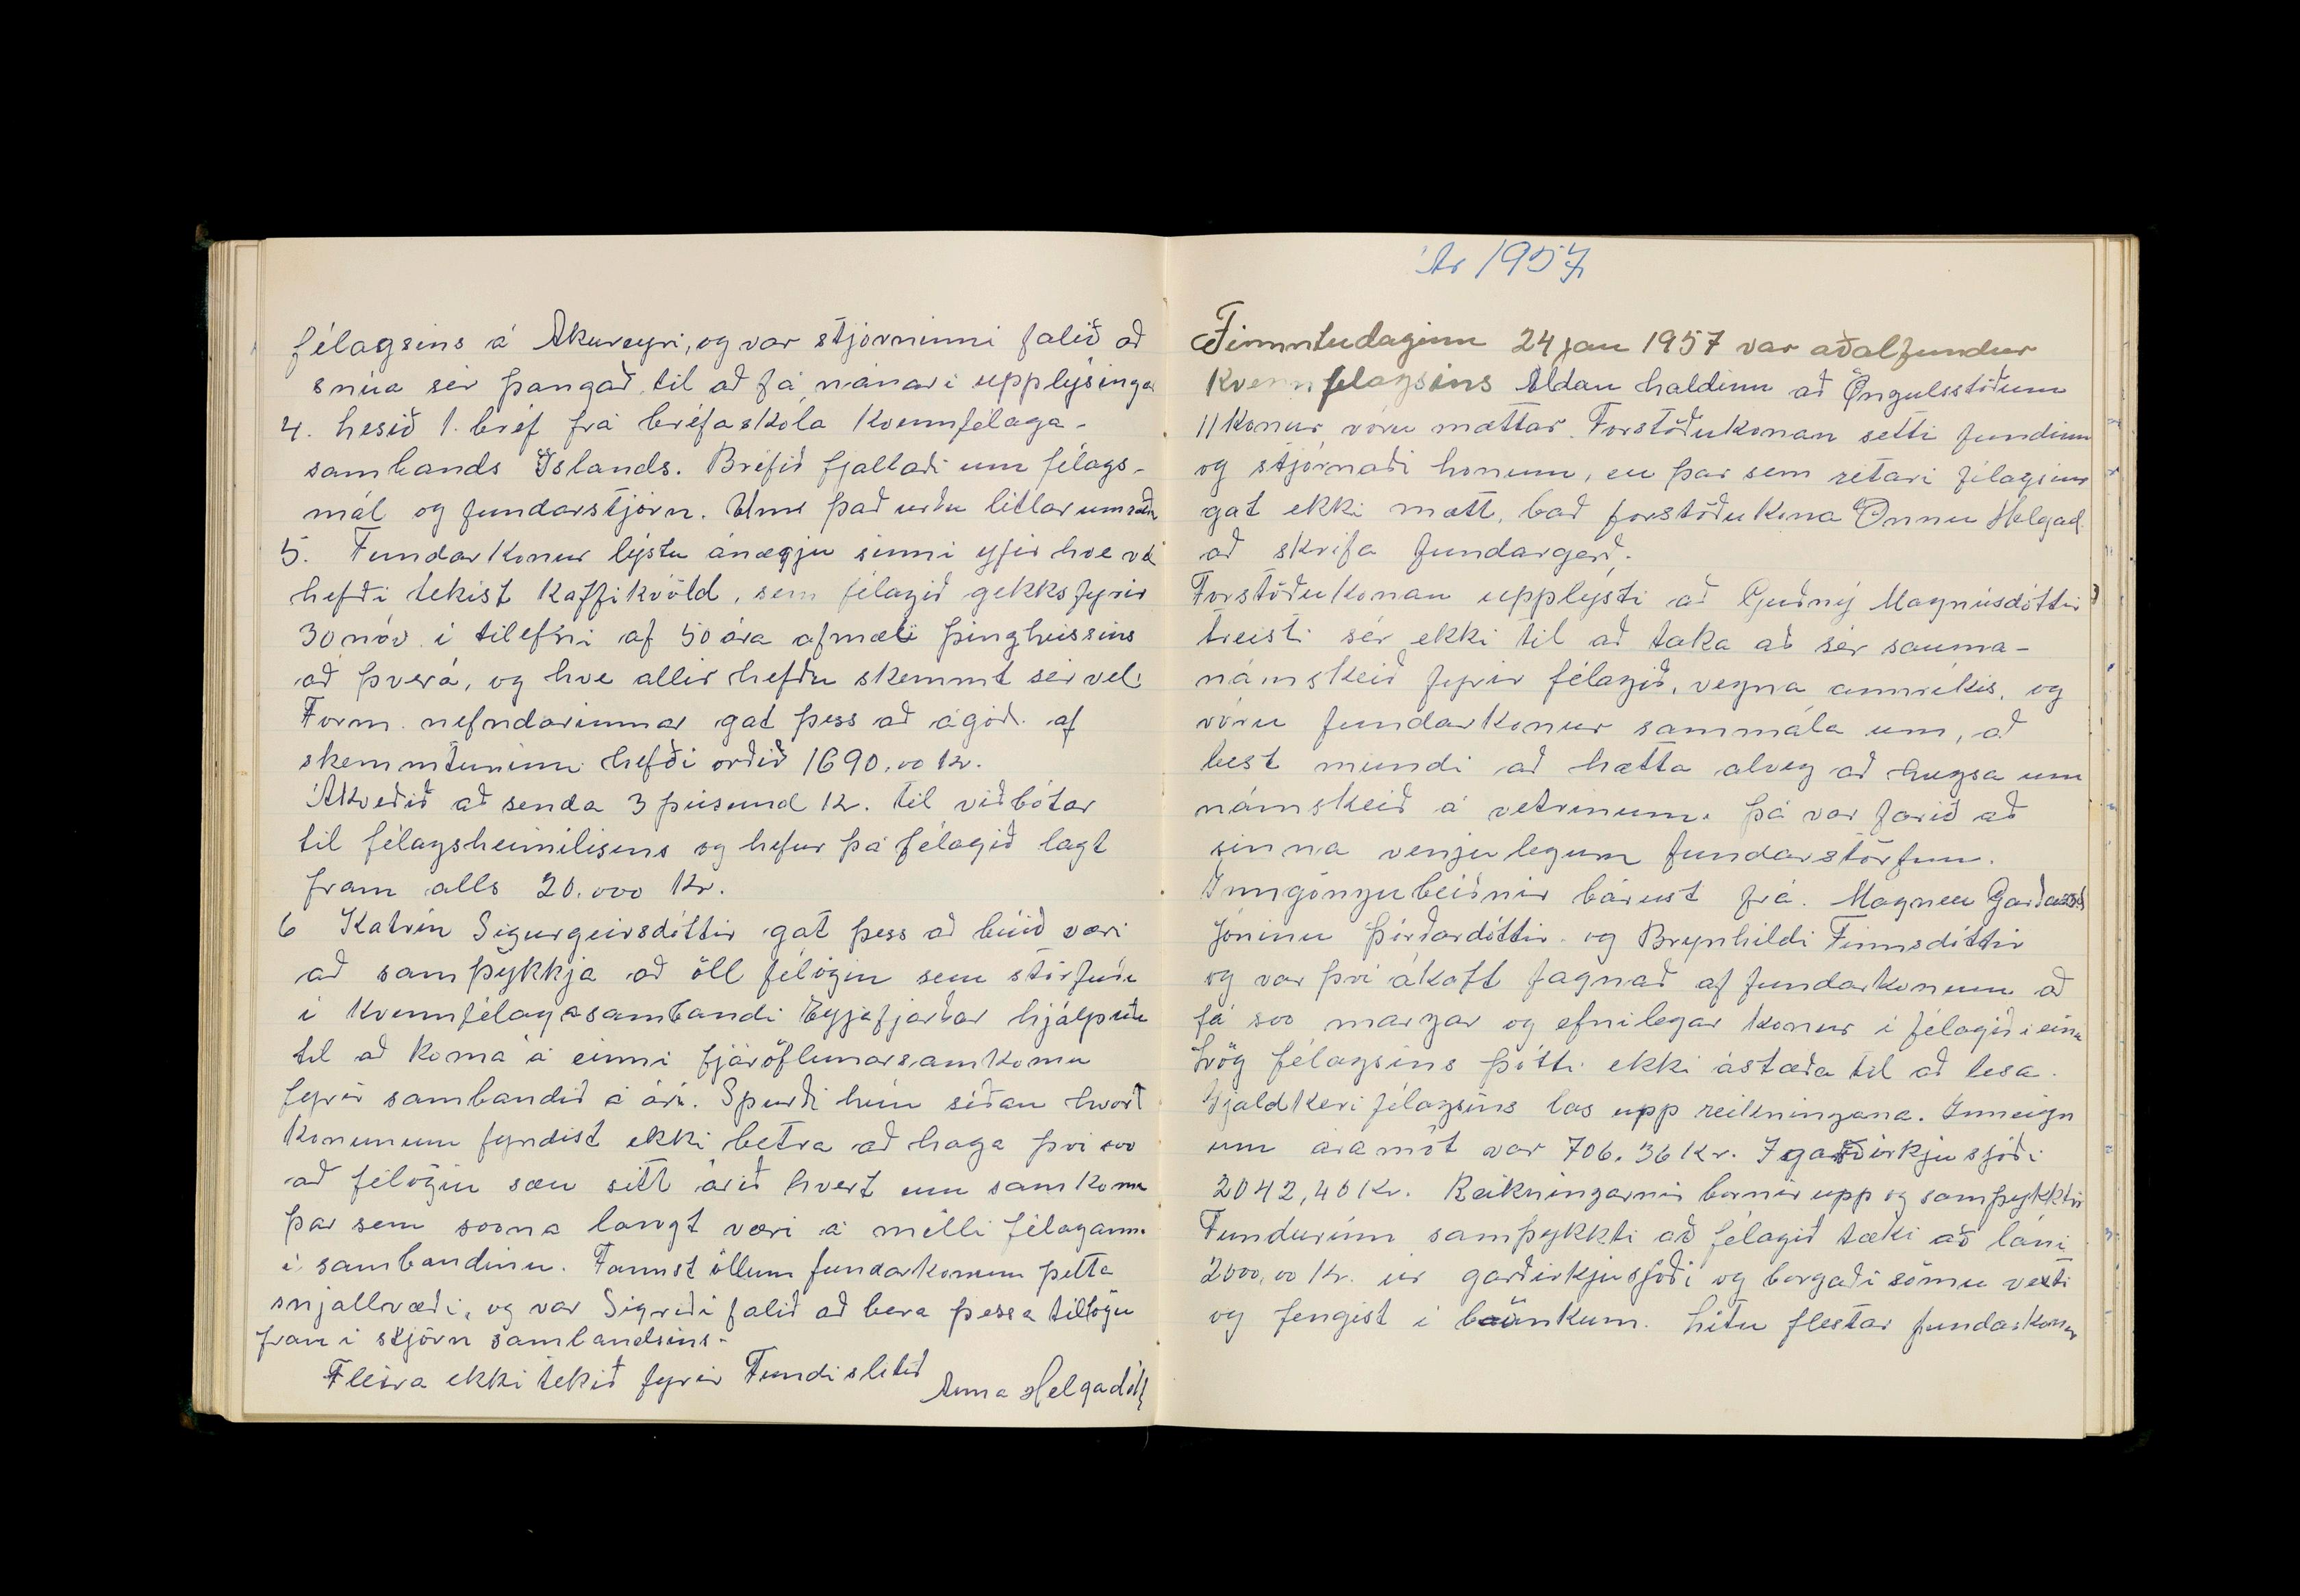 félagsins á Akureyri, og var stjórninni falið að
snúa sér þangað til að fá nánari upplýsingar
4. Lesið 1. bréf frá bréfaskóla Kvennfélaga-
sambands Íslands. Bréfið fjallaði um félags-
mál og fundarstjórn. Um það urðu litlar umræður
5. Fundarkonur lýstu ánægju sinni yfir hve vel
hefði tekist Kaffikvöld, sem félagið gekkst fyrir
30 nóv. í tilefni af 50 ára afmæli þinghússins
að Þverá, og hve allir hefðu skemmt sér vel.
Form. nefndarinnar gat þess að ágóði af
skemmtuninni hefði orðið 1690,00 kr.
Ákveðið að senda 3 þúsund kr. til viðbótar
til félagsheimilisins og hefur þá félagið lagt
fram alls 20.000 Kr.
6 Katrín Sigurgeirsdóttir gat þess að búið væri
að samþykkja að öll félögin sem störfuðu
í Kvennfélagasambandi Eyjafjarðar hjálpuðu
til að koma á einni fjáröflunarsamkomu
fyrir sambandið á ári. Spurði hún síðan hvort
konunum fyndist ekki betra að haga því svo
að félögin sæu sitt árið hvert um samkomu
þar sem svona langt væri á milli félaganna
í sambandinu. Fannst öllum fundarkonum þetta
snjallræði, og var Sigríði falið að bera þessa tillögu
fram í stjórn sambandsins-
Fleira ekki tekið fyrir Fundi slitið
Anna Helgadótt
Ár 1957
Fimmtudaginn 24 jan 1957 var aðalfundur
Kvennfélagsins Aldan haldinn að Öngulsstöðum
11 konur voru mættar. Forstöðukonan setti fundinn
og stjórnaði honum, en þar sem ritari félagsins
gat ekki mætt, bað forstöðukona Önnu Helgad.
að skrifa fundargerð.
Forstöðukonan upplýsti að Guðný Magnúsdóttir
treisti sér ekki til að taka að sér sauma-
námskeið fyrir félagið, vegna annríkis, og
vóru fundarkonur sammála um, að
best mundi að hætta alveg að hugsa um
námskeið á vetrinum. Þá var farið að
sinna venjulegum fundarstörfum.
Inngöngubeiðnir bárust frá. Magneu Garðarsd
Jónínu Þórðardóttir og Brynhildi Finnsdóttir
og var því ákaft fagnað af fundarkonum að
fá svo margar og efnilegar konur í félagið í einu
Lög félagsins þótti ekki ástæða til að lesa.
Gjaldkeri félagsins las upp reikningana. Inneign
um áramót var 706,36 Kr. Í garðirkjusjóði
2042,46 Kr. Reikningarnir bornir upp og samþykktir
Fundurinn samþykkti að félagið tæki að láni
2000,00 kr. úr garðirkjusjóði og borgaði sömu vexti
og fengist í bönkum. Litu flestar fundarkonur